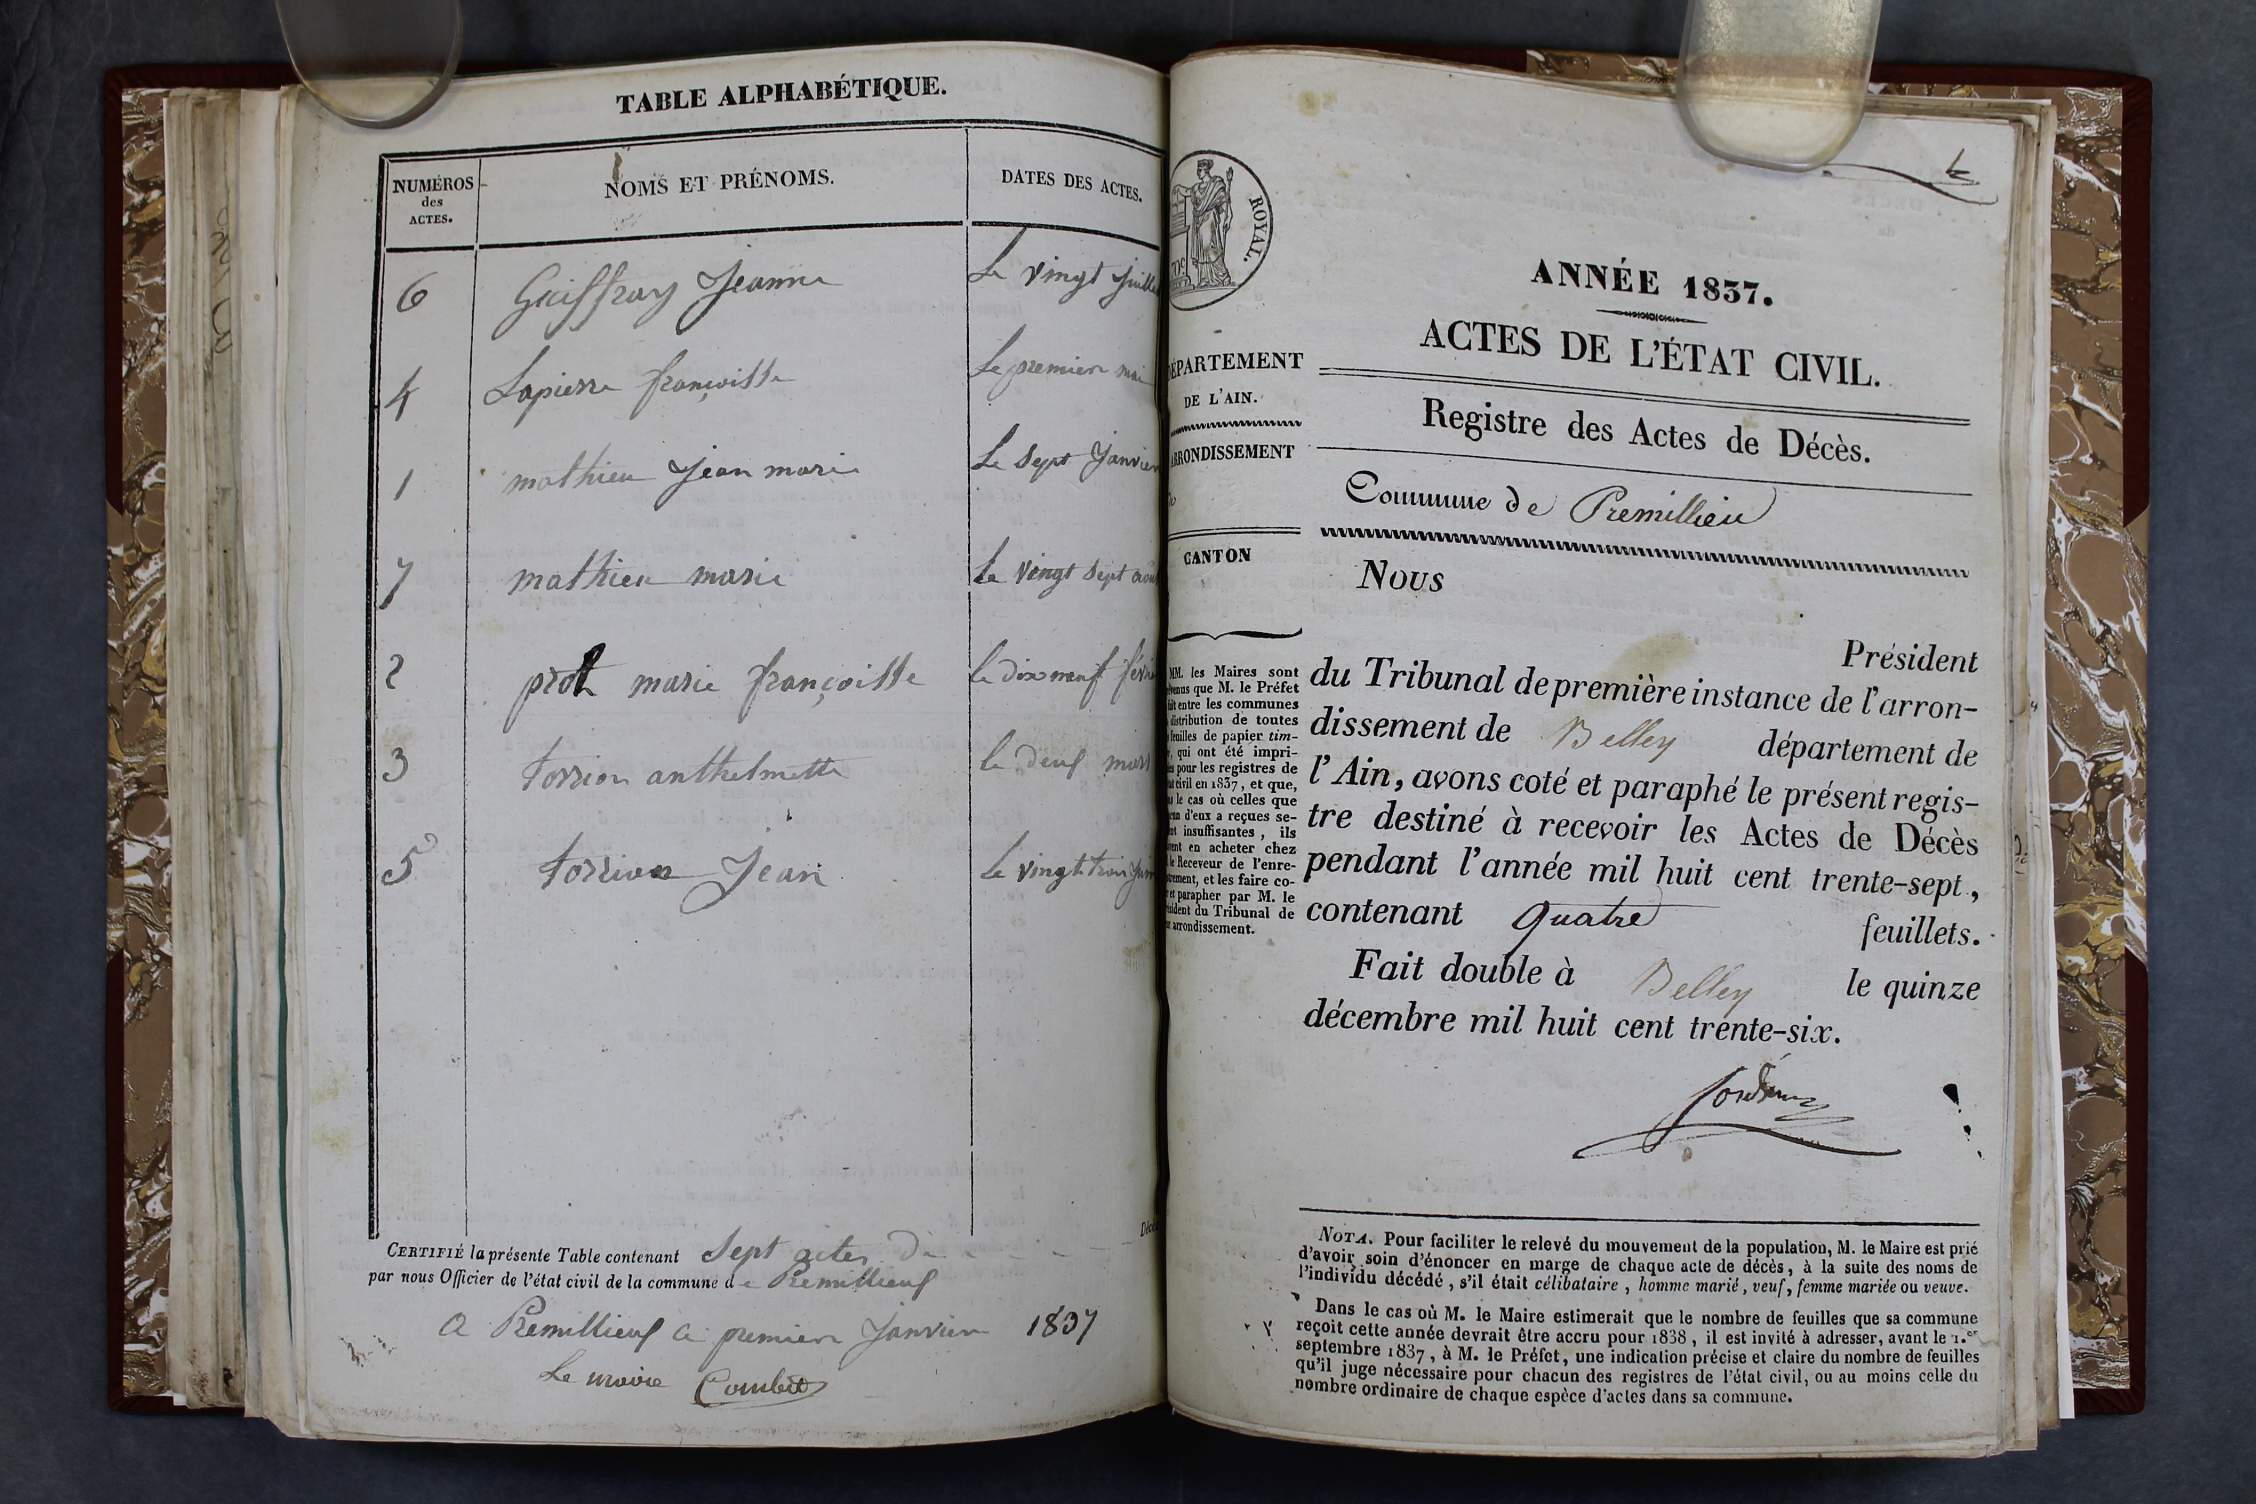 TABLE ALPHABÉTIQUE.
NUMÉROS des ACTES. NOMS ET PRÉNOMS. DATES DES ACTES.
6 Guiffray Jeanne Le vingt juillet
4 Lapierre françoisse Le premier mai
1 mathieu Jean marie Le sept Janvier
7 mathieu marie le vingt sept aout
2 prot marie françoisse le dix neuf févri
3 torrion anthelmette le deux mars
5 torrion Jean Le vingt trois Juin
CERTIFIÉ la présente Table contenant Sept actes De
Décè
par nous Officier de l'état civil de la commune de Premillieux
a Premillieux ce premier Janvier 1837
Le maire Combet
ROYAL.
ANNÉE 1837.
ACTES DE L'ÉTAT CIVIL.
Registre des Actes de Décès.
Commune de Premillieu
DÉPARTEMENT
DE L'AIN.
ARRONDISSEMENT
CANTON
MM. les Maires sont
venus que M. le Préfet
fait entre les communes
distribution de toutes
feuilles de papier tim-
, qui ont été impri-
es pour les registres de
at civil en 1837, et que,
s le cas où celles que
cun d'eux a reçues se-
nt insuffisantes, ils
vent en acheter chez
le Receveur de l'enre-
trement, et les faire co-
r et parapher par M. le
résident du Tribunal de
r arrondissement.
Nous
Président
du Tribunal de première instance de l'arron-
dissement de Belley département de
l'Ain, avons coté et paraphé le présent regis-
tre destiné à recevoir les Actes de Décès
pendant l'année mil huit cent trente-sept,
contenant quatre feuillets.
Fait double à Belley le quinze
décembre mil huit cent trente-six.
NOTA. Pour faciliter le relevé du mouvement de la population, M. le Maire est prié
d'avoir soin d'énoncer en marge de chaque acte de décès, à la suite des noms de
l'individu décédé, s'il était célibataire, homme marié, veuf, femme mariée ou veuve.
Dans le cas où M. le Maire estimerait que le nombre de feuilles que sa commune
reçoit cette année devrait être accru pour 1838, il est invité à adresser, avant le 1.er
septembre 1837, à M. le Préfet, une indication précise et claire du nombre de feuilles
qu'il juge nécessaire pour chacun des registres de l'état civil, ou au moins celle du
nombre ordinaire de chaque espèce d'actes dans sa commune.